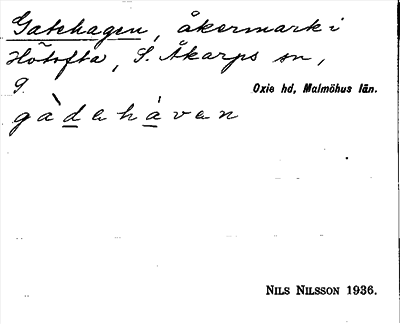 Gatehagen, åkermark i
Hötofta, S. Åkarps sn,
9. Oxie hd, Malmöhus län.
gàdehávan
NILS NILSSON 1936.